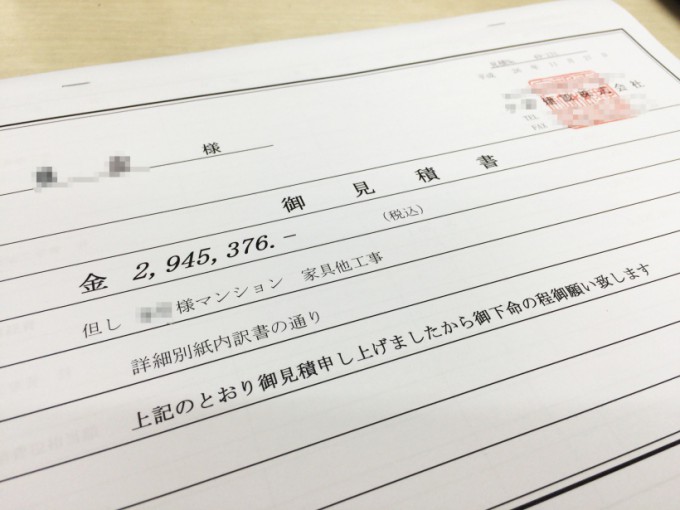 建設株式会社
TEL
FAX
様
御見積書
金 2,945,376.- (税込)
但し 様マンション 家具他工事
詳細別紙内訳書の通り
上記のとおり御見積申し上げましたから御下命の程御願い致します